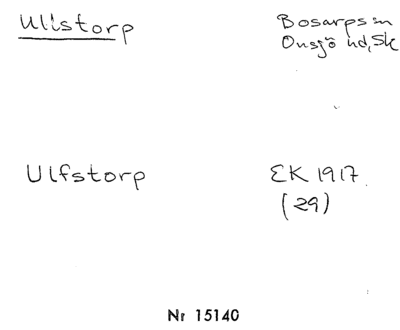 Ullstorp
Bosarps sn
Onsjö hd, Sk
Ulfstorp
EK 1917
(29)
Nr 15140